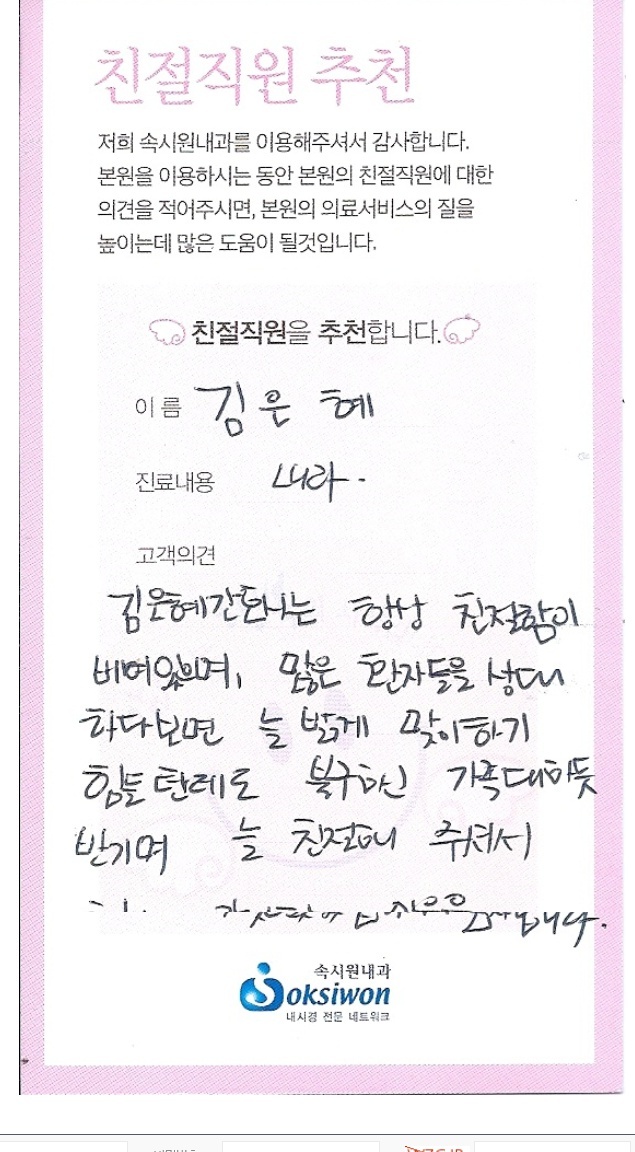 친절직원 추천
저희 속시원내과를 이용해주셔서 감사합니다.
본원을 이용하시는 동안 본원의 친절직원에 대한
의견을 적어주시면, 본원의 의료서비스의 질을
높이는데 많은 도움이 될것입니다.
친절직원을 추천합니다.
이 름 김은혜
진료내용 내과.
고객의견
김은혜간호사는 항상 친절함이
베어있으며, 많은 환자들을 상대
하다보면 늘 밝게 맞이하기
힘들텐데도 불구하신 가족대하듯
반기며 늘 친절해 주셔서
속시원내과
Soksiwon
내시경 전문 네트워크